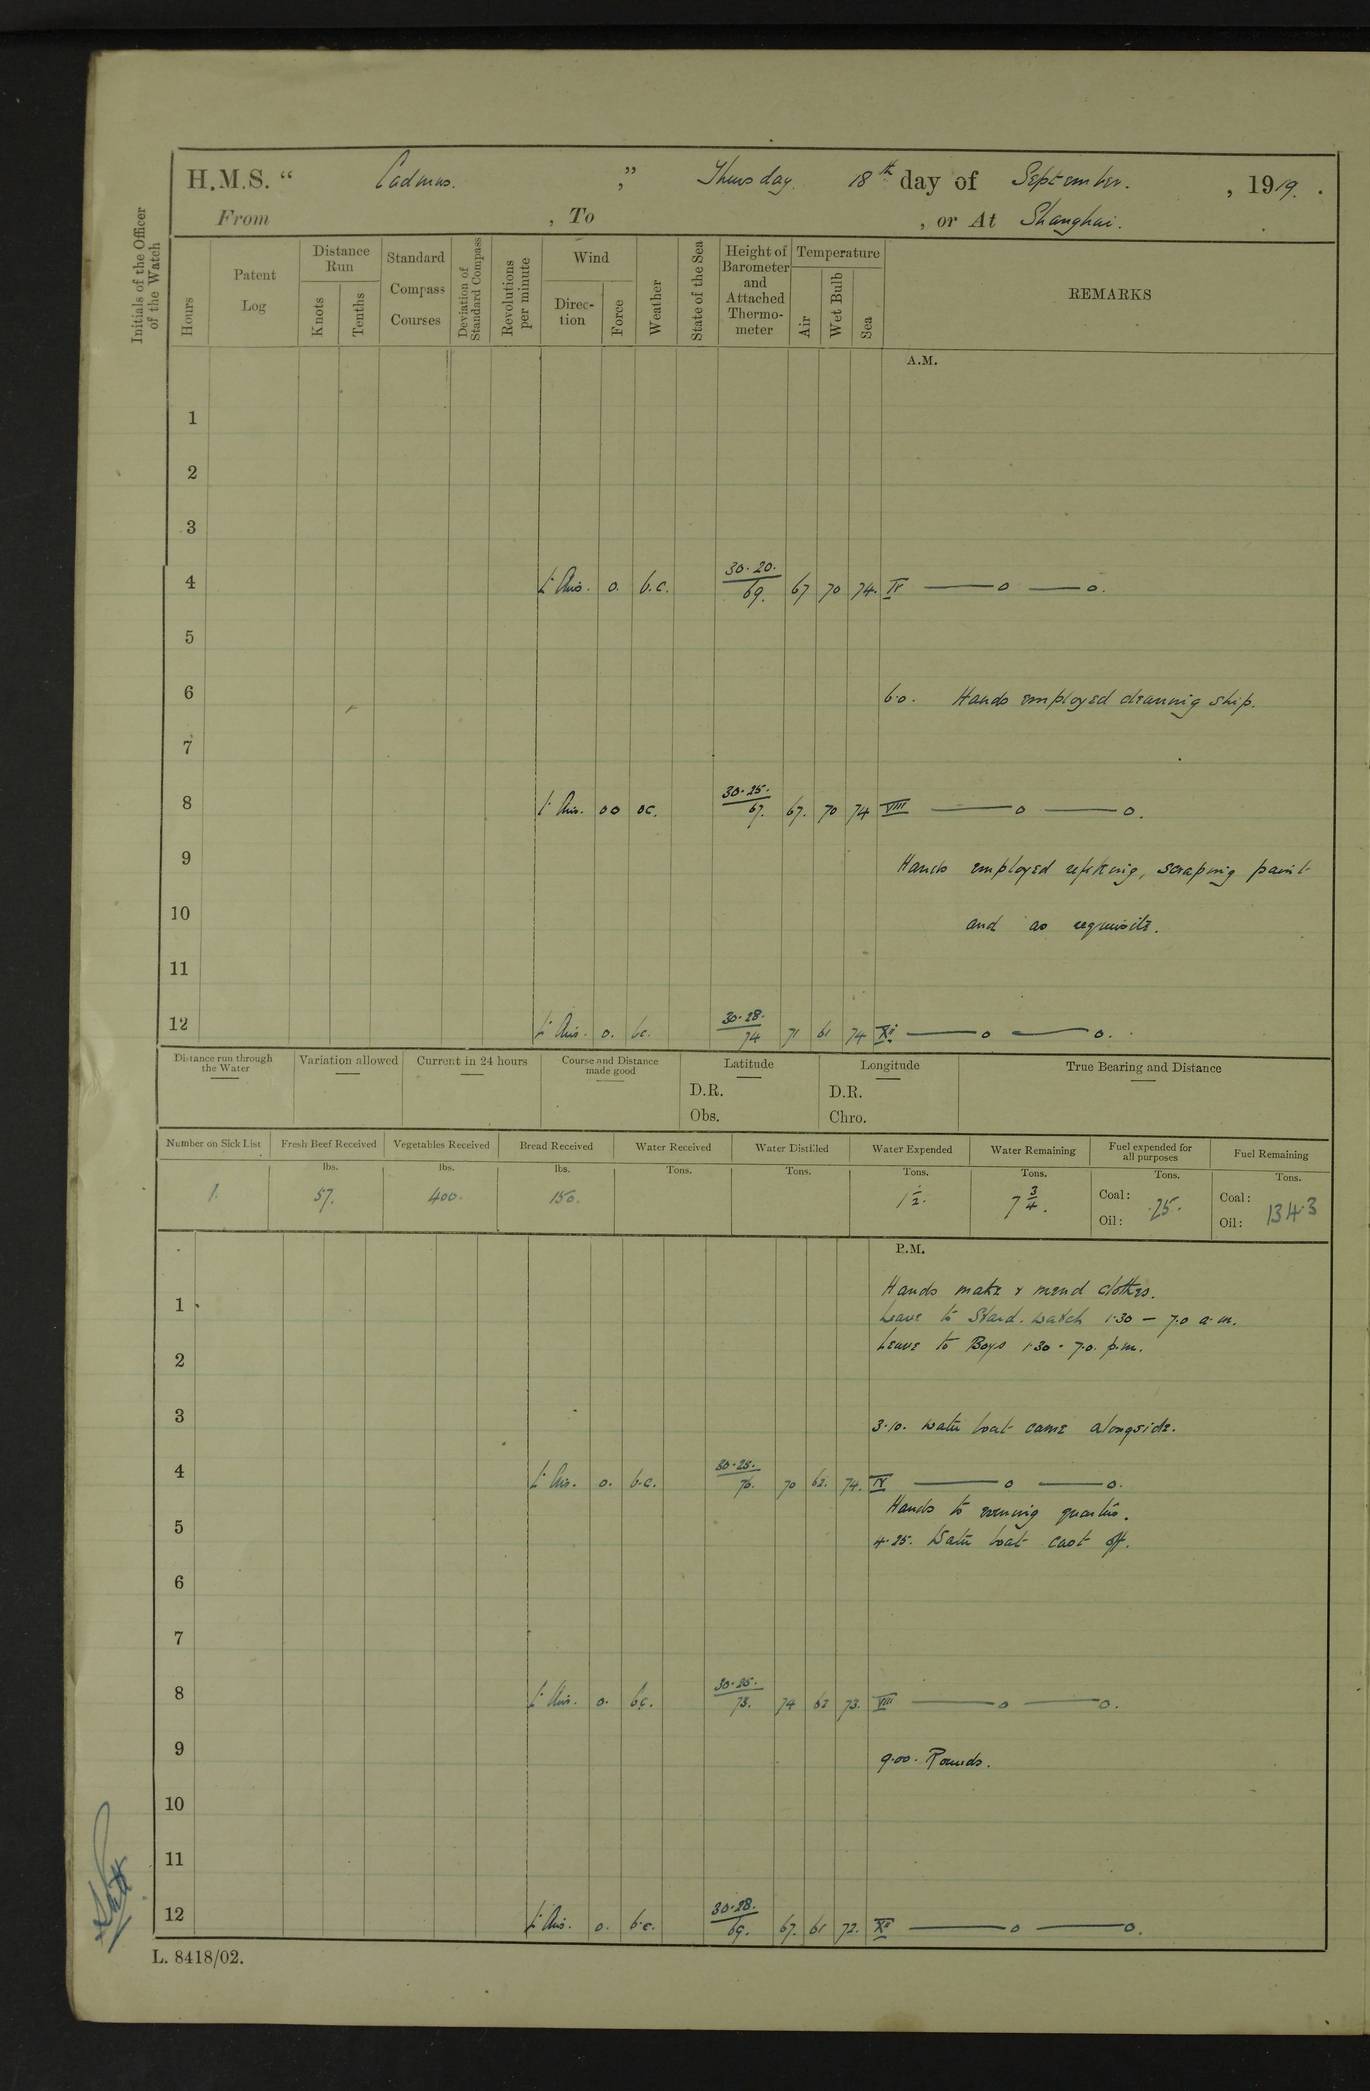 H.M.S. “ Cadmus. ,” Thursday. 18th day of September. , 1919.
From , To , or At Shanghai.
Initials of the Officer of the Watch
Hours
Patent Log
Distance Run
Knots
Tenths
Standard Compass Courses
Deviation of Standard Compass
Revolutions per minute
Wind
Direction
Force
Weather
State of the Sea
Height of Barometer and Attached Thermometer
Temperature
Air
Wet Bulb
Sea
REMARKS
A.M.
1
2
3
4 Lt Airs. 0. b.c. 30.20. 69. 67 70 74. IV —o —o.
5
6 6.0. Hands employed cleaning ship.
7
8 Lt Airs. 00 oc. 30.25. 67. 67. 70 74 VIII —o —o.
9 Hands employed refitting, scraping paint
10 and as requisite.
11
12 Lt Airs. 0. bc. 30.28. 74 71 61 74 XII —o —o.
Distance run through the Water
Variation allowed
Current in 24 hours
Course and Distance made good
Latitude
D.R.
Obs.
Longitude
D.R.
Chro.
True Bearing and Distance
Number on Sick List Fresh Beef Received Vegetables Received Bread Received Water Received Water Distilled Water Expended Water Remaining Fuel expended for all purposes Fuel Remaining
lbs. lbs. lbs. Tons. Tons. Tons. Tons. Tons. Tons.
1. 57. 400. 150. 1 1/2. 7 3/4. Coal: Oil: .25. Coal: Oil: 134.3
P.M.
Hands make & mend clothes.
1 Leave to Stard. Watch 1.30 — 7.0 a.m.
2 Leave to Boys 1.30 - 7.0. p.m.
3 3.10. Water boat came alongside.
4 Lt Airs. 0. b.c. 30.25. 76. 70 62. 74. IV —o —o.
Hands to evening quarters.
5 4.25. Water boat cast off.
6
7
8 Lt Airs. 0. bc. 30.25. 73. 74 62 73. VIII —o —o.
9 9.00. Rounds.
10
11
12 Lt Airs. 0. b.c. 30.28. 69. 67. 61 72. XII —o —o.
L. 8418/02.